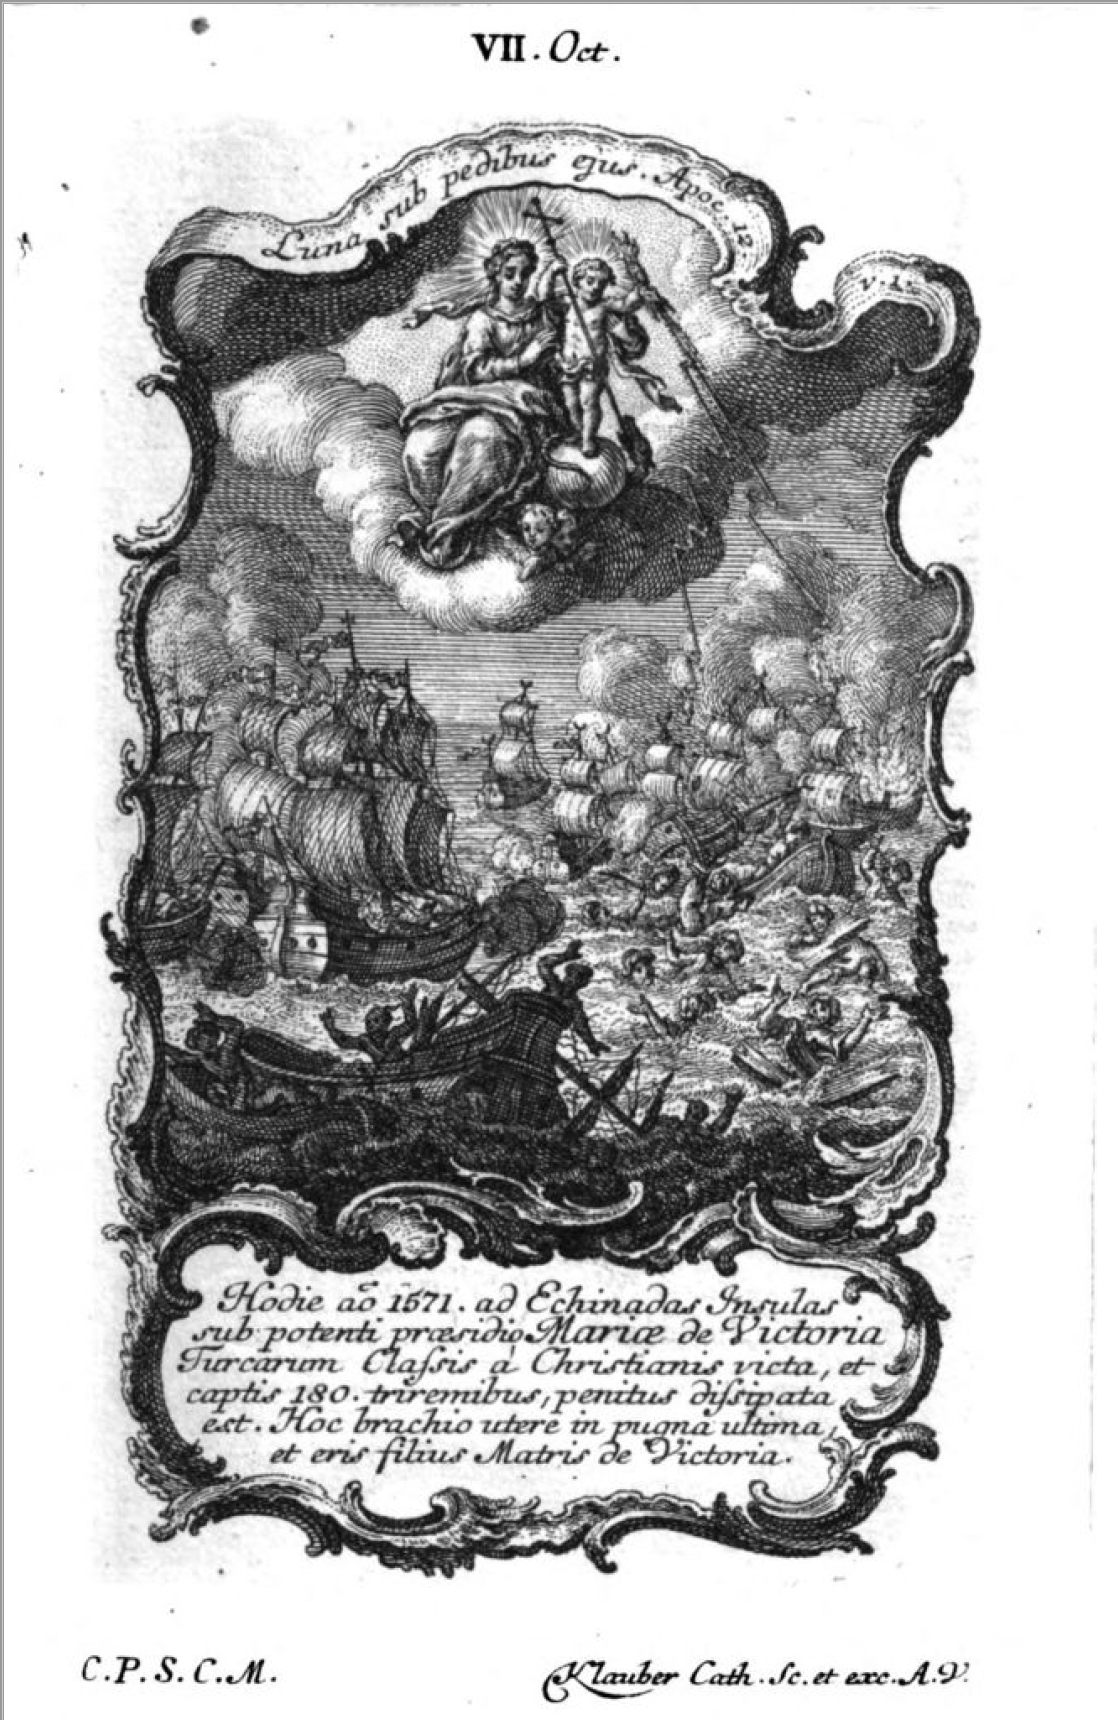 VII. Oct.
Luna sub pedibus ejus. Apoc. 12
v. 1.
Hodie aō 1571. ad Echinadas Insulas
sub potenti præsidio Mariæ de Victoria
Turcarum Claſsis à Christianis victa, et
captis 180. triremibus, penitus diſsipata
est. Hoc brachio utere in pugna ultima,
et eris filius Matris de Victoria.
C.P.S.C.M.
Klauber Cath. Sc. et exc. A.V.